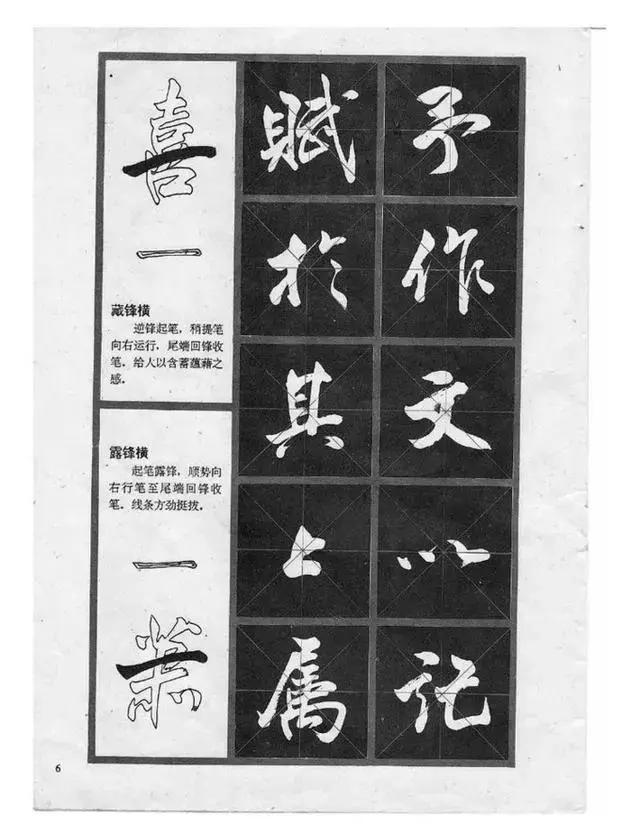 喜
一
藏锋横
逆锋起笔，稍提笔
向右运行，尾端回锋收
笔。给人以含蓄蕴藉之
感。
露锋横
起笔露锋，顺势向
右行笔至尾端回锋收
笔。线条方劲挺拔。
一
賦於其上属
予作文以記
6